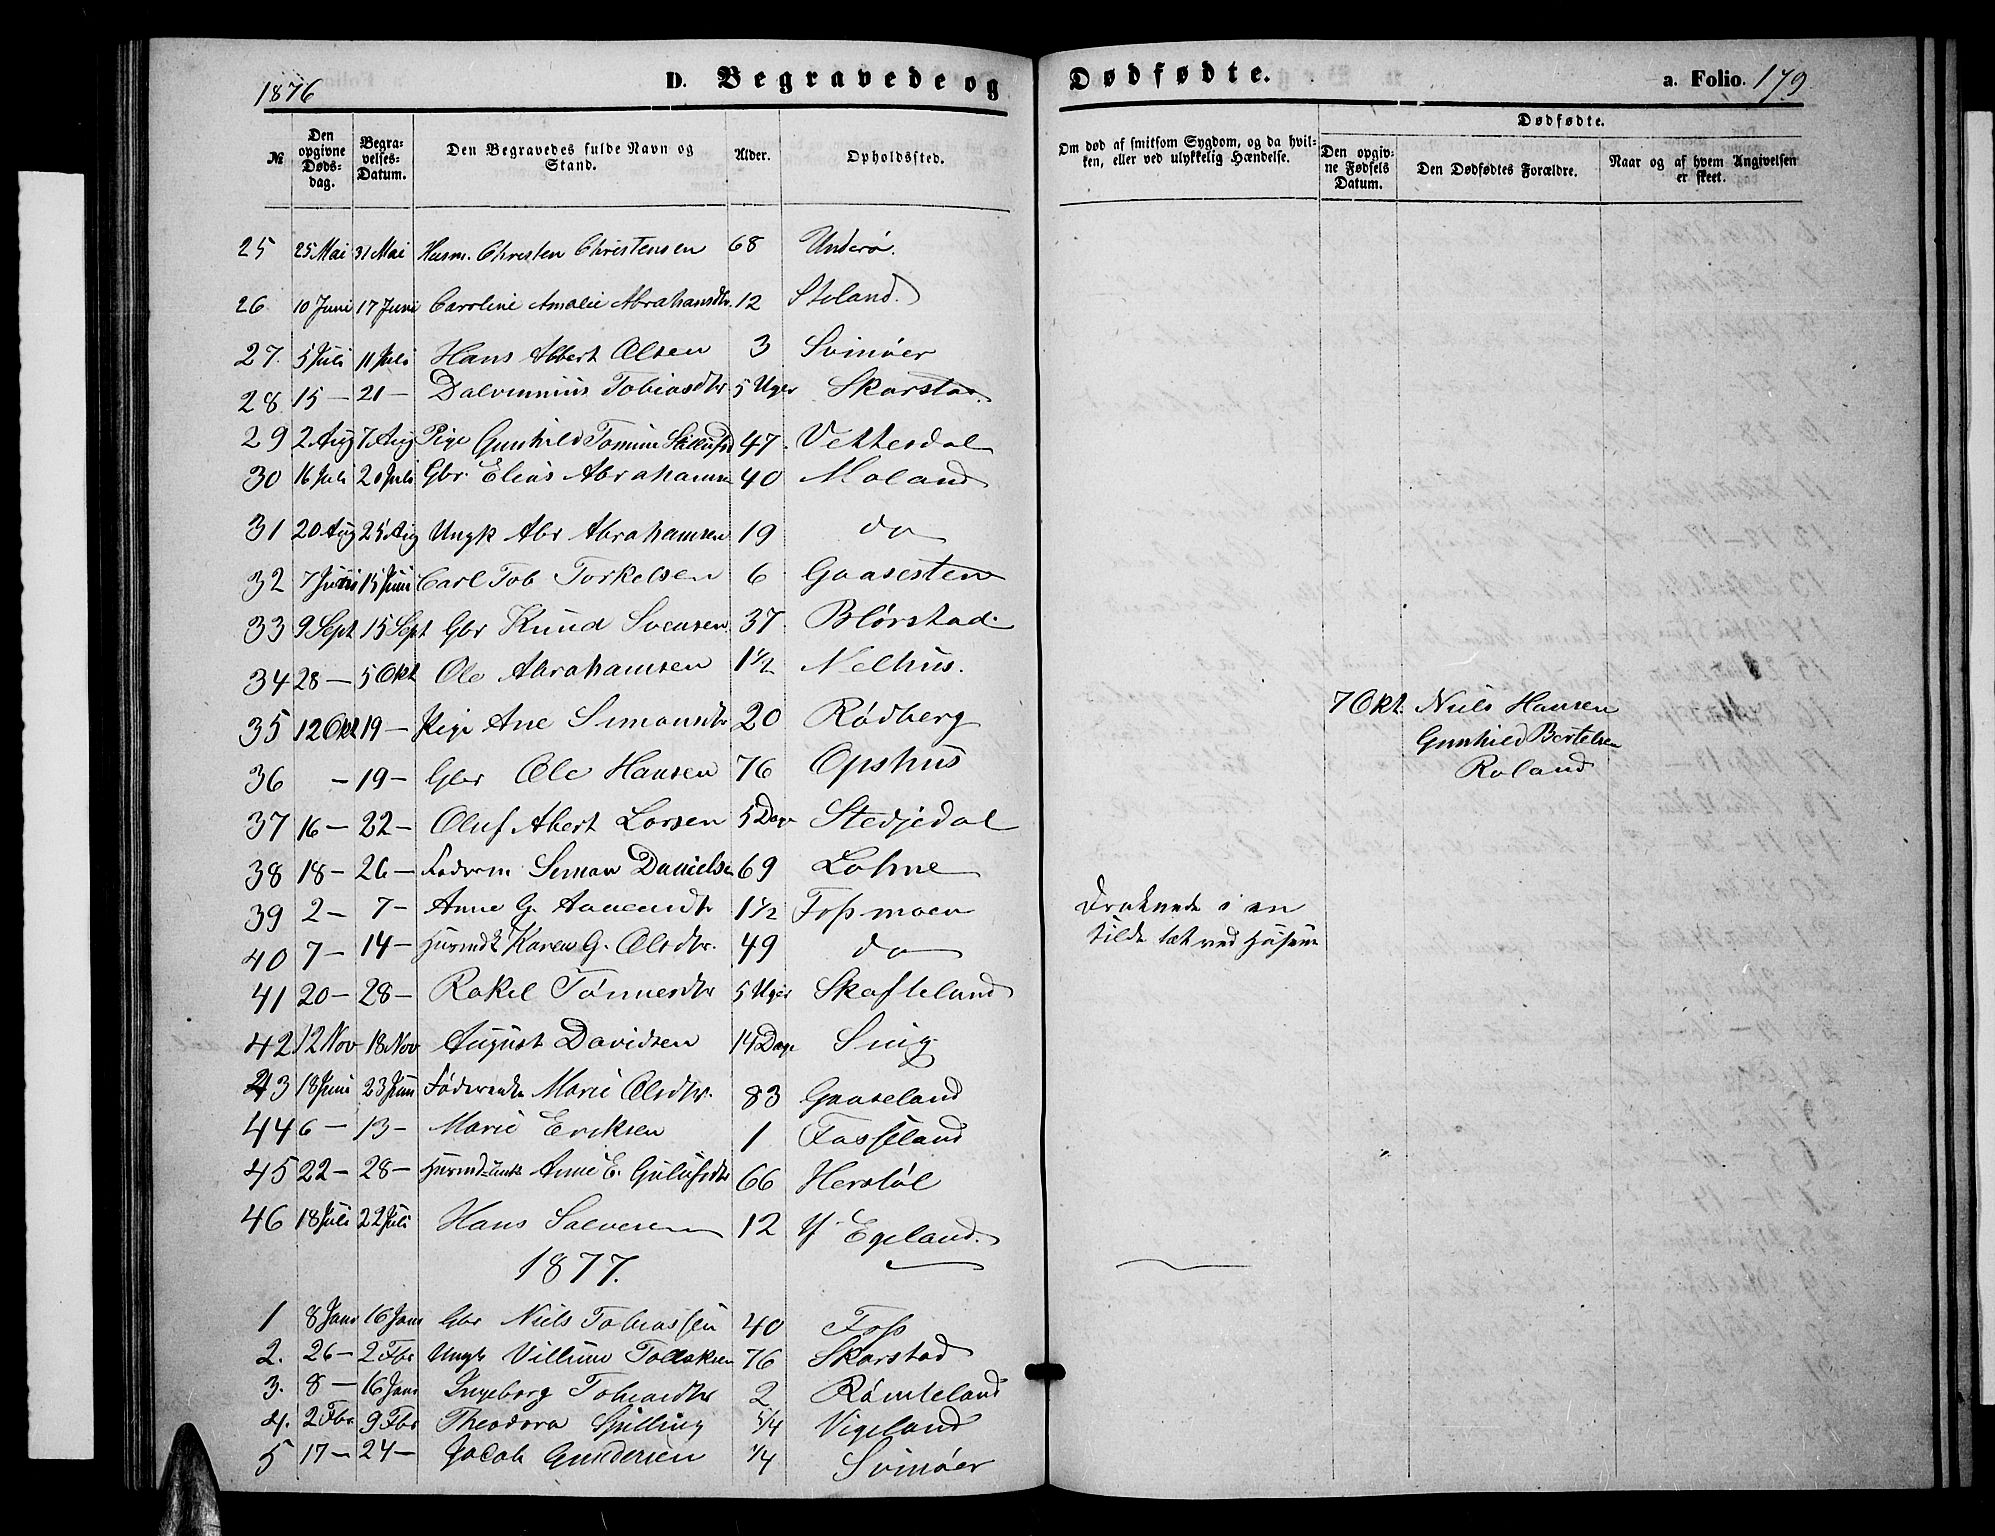 1876
D. Begravede og Dødfødte.
a. Folio. 179.
№ | Den opgivne Dødsdag. | Begravelses-Datum. | Den Begravedes fulde Navn og Stand. | Alder. | Opholdssted. | Om død af smitsom Sygdom, og da hvilken, eller ved ulykkelig Hændelse. | Dødfødte. | Den opgivne Fødsels Datum. | Den Dødfødtes Forældre. | Naar og af hvem Angivelsen er skeet.
25 25 Mai 31 Mai Husm. Christen Christensen 68 Underø.
26 10 Juni 17 Juni Caroline Amalie Abrahamsdtr. 12 Stoland.
27. 5 Juli 11 Juli Hans Albert Olsen 3 Svinøer
28. 15 — 21 — Tobiasdtr 5 Uger Skarstad.
29 2 Aug 7 Aug Pige Gunhild Tomine 47. Vettesdal
30 16 Juli 20 Juli Gbr. Elias Abrahamsen 40 Moland
31 20 Aug 25 Aug Ungk Abr Abrahamsen 19 do
32 7 Juni 15 Juni Carl Tob Torkelsen 6 Gaasesten
33 9 Sept 15 Sept Gbr Knud Svensen 37 Blørstad.
34 28 — 5 Okt Ole Abrahamsen 1½ Nelhus.
35 12 Okt 19 — Pige Ane Simonsdtr 20 Rødberg
7 Okt. Niels Hansen
Gunhild Bertelsen
Roland
36 — 19 — Gbr Ole Hansen 76 Opshus
37 16 — 22 — Oluf Albert Larsen 5 Dage Stedjedal
38 18 — 26 — Simon Danielsen 69 Lohne
39 2 — 7 — Anne G. Aanensdtr 1½ Fossmoen
Druknede i en
kilde tæt ved Husene
40 7 — 14 — Karen G. Olsdtr. 49 do
41 20 — 28 — Rakel Tønnesdtr 5 Uger Skofteland
42 12 Nov 18 Nov August Davidsen 14 Dage Snig
43 18 Juni 23 Juni Føderenke Marie Olsdtr. 83 Gaaseland
44 6 — 13 — Marie Eriksen 1 Fasseland
45 22 — 28 — Anne E. Gulufsdtr 66 Herstøl
46 18 Juli 22 Juli Hans Salvesen 12 Y Egeland.
1877.
1 8 Janr 16 Janr Gbr Niels Tobiassen 40 Foss
2. 26 — 2 Fbr Ungk Villum Tollaksen 76 Skarstad
3. 8 — 16 Janr Ingeborg Tobiasdtr 2 Rømteland
4. 2 Fbr 9 Fbr Theodora Spilling 5/4 Vigeland
5 17 — 24 — Jacob Gundersen ¼ Svinøer